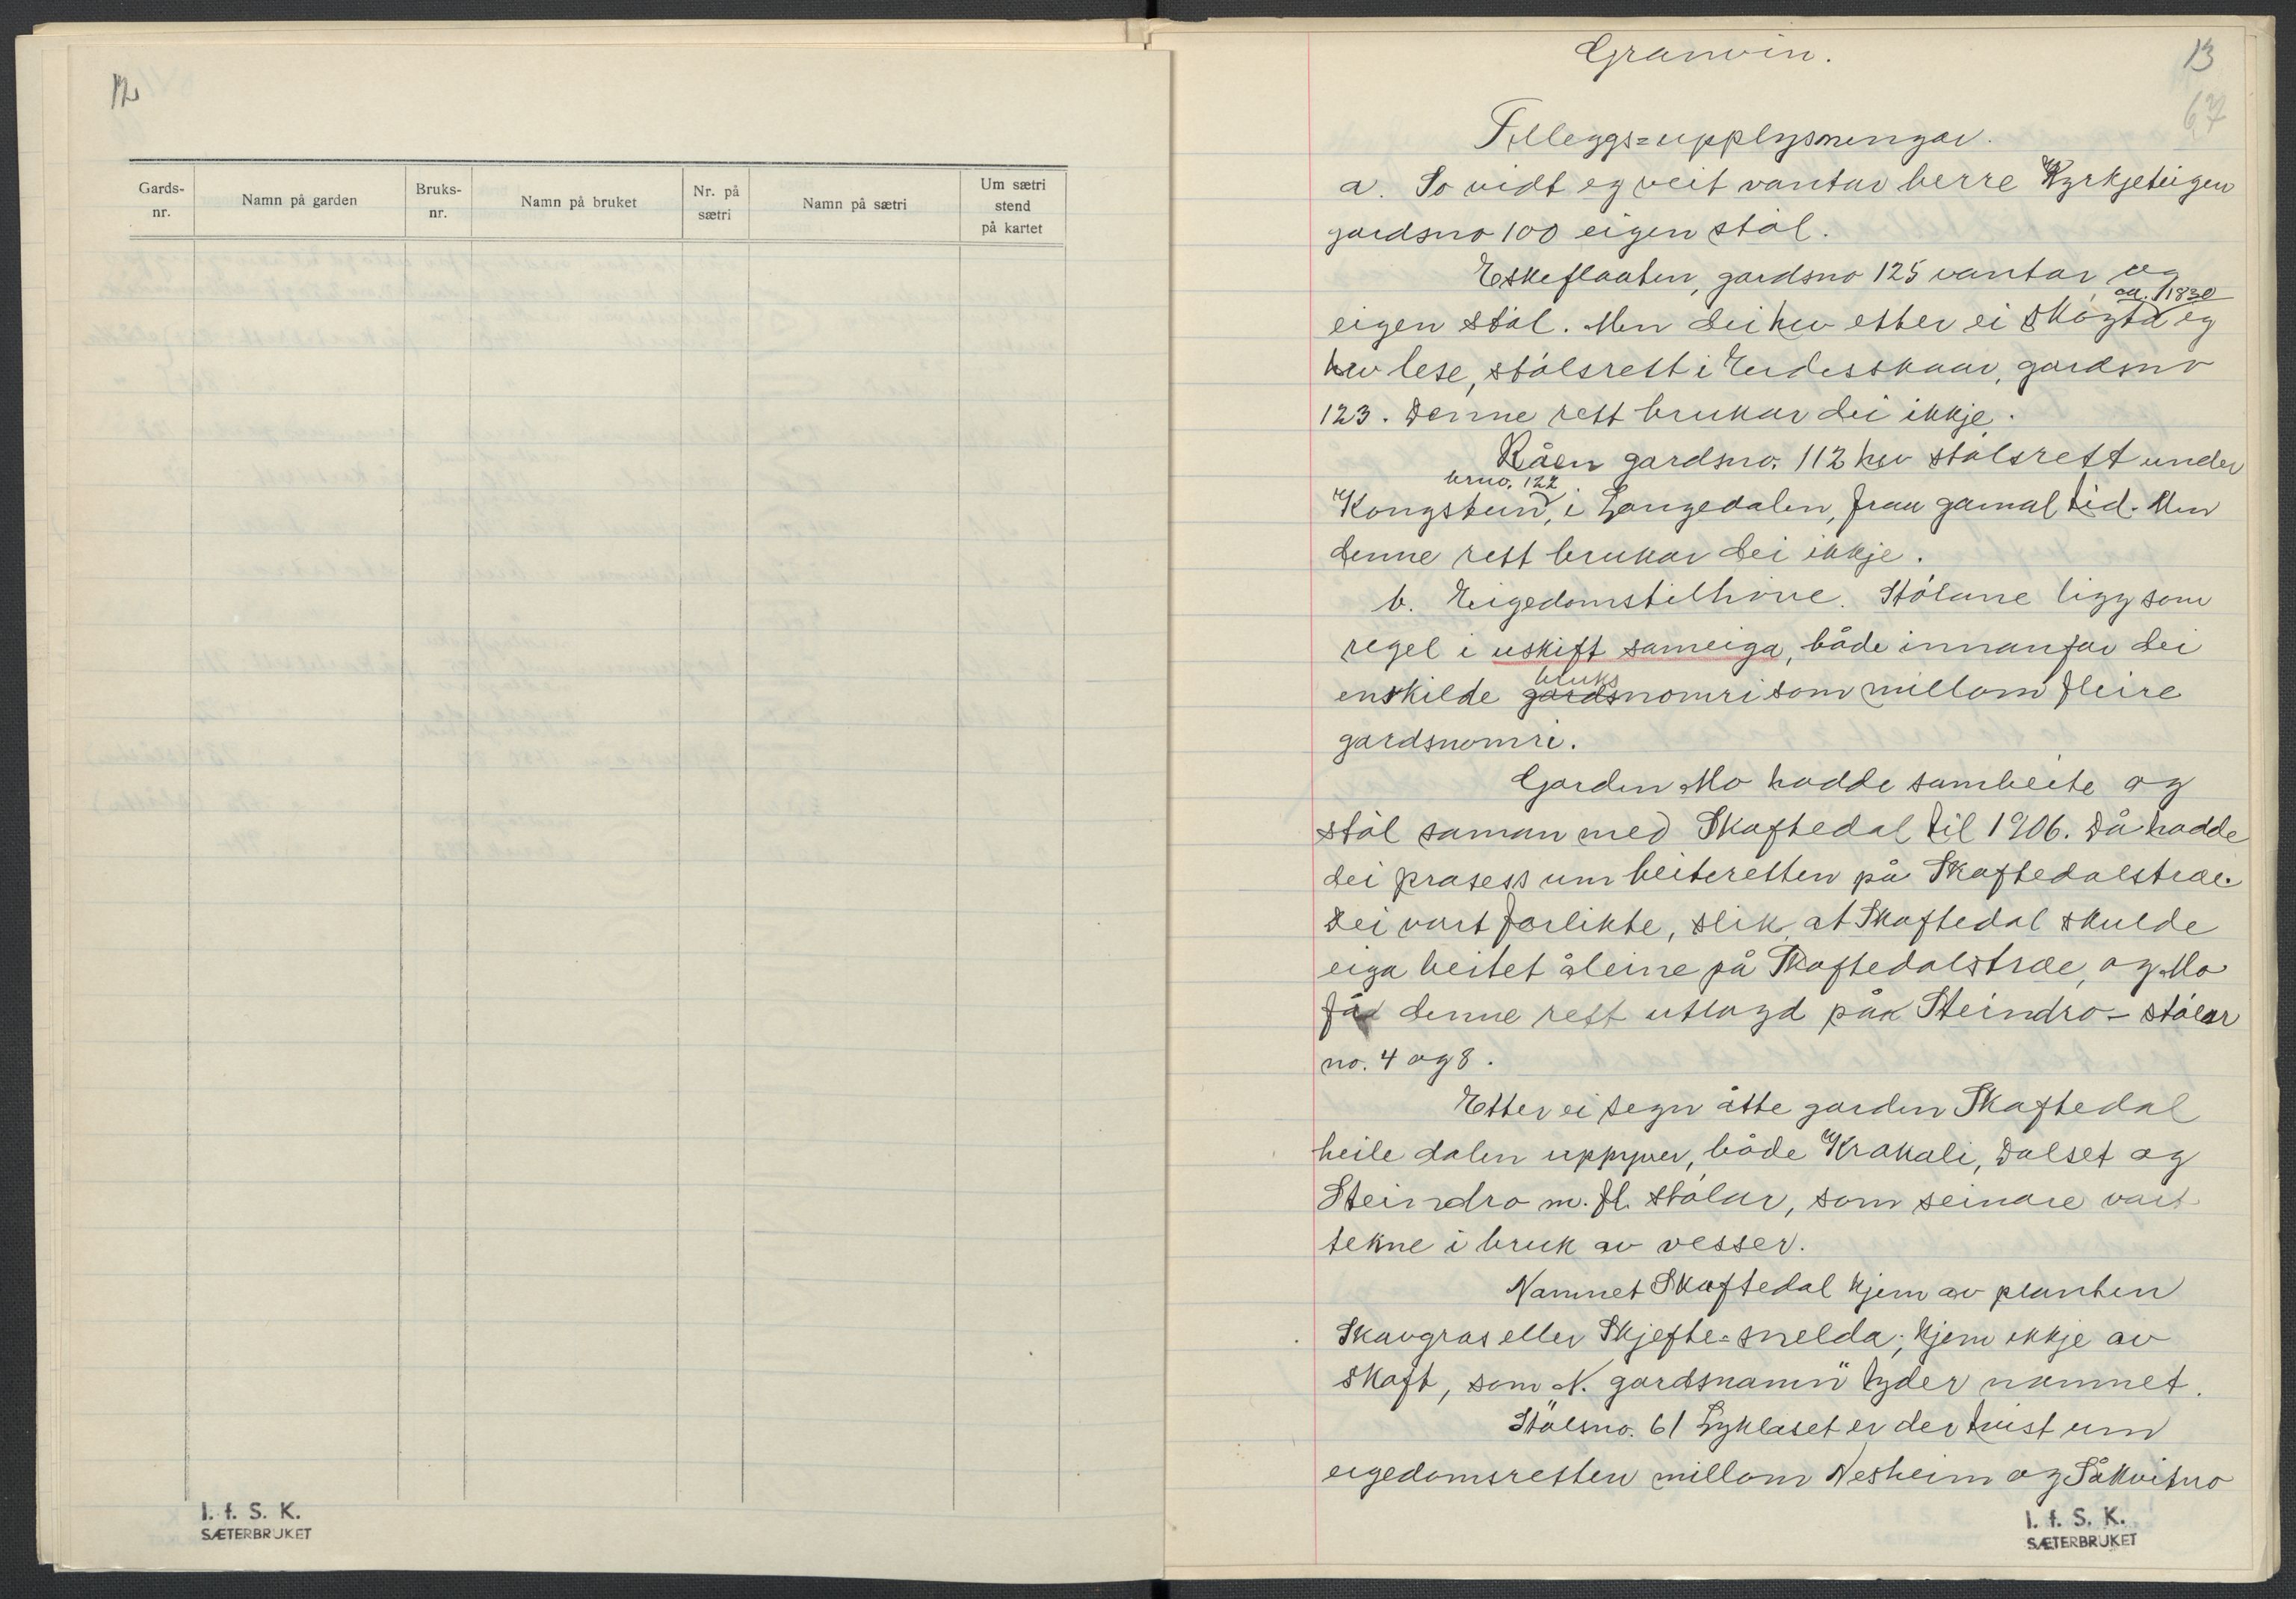 12
Gards-
nr.
Namn på garden
Bruks-
nr.
Namn på bruket
Nr. på
sætri
Namn på sætri
Um sætri
stend
på kartet
I. f. S. K.
SÆTERBRUKET
Granvin.
13
67
Tilleggs=upplysningar.
a. So vidt eg veit vantar berre Kyrkjeteigen
gardsno 100 eigen støl.
Eskeflaaten, gardsno 125 vantar og
eigen støl. Men dei hev etter ei skøyta ca. 1830 eg
hev lese, stølsrett i Eidesskaar, gardsno
123. Denne rett brukar dei ikkje.
Råen gardsno. 112 hev stølsrett under
Kongstun brno. 122, i Langedalen, fraa gamal tid. Men
denne rett brukar dei ikkje.
b. Eigedomstilhöve. Stølane ligg som
regel i uskift sameiga, både innanfor dei
enskilde gards bruksnomri som millom fleire
gardsnomri.
Garden Mo hadde sambeite og
støl saman med Skaftedal til 1906. Då hadde
dei prosess um beiteretten på Skaftedalstræe.
Dei vart forlikte, slik, at Skaftedal skulde
eiga beitet åleine på Skaftedalstræe, og Mo
få denne rett utlagd på Steindro-stølar
no. 4 og 8.
Etter ei segn åtte garden Skaftedal
heile dalen uppyver, både Krakali, Dalset og
Steindro m. fl. stølar, som seinare vart
tekne i bruk av vesser.
Namnet Skaftedal kjem av planten
Skavgras eller Skjefte-snelda; kjem ikkje av
skaft, som "N. gardsnamn" tyder namnet.
Stølsno. 61 Lyklaset er der tvist um
eigedomsretten millom Nesheim og Såkvitno
I. f. S. K.
SÆTERBRUKET